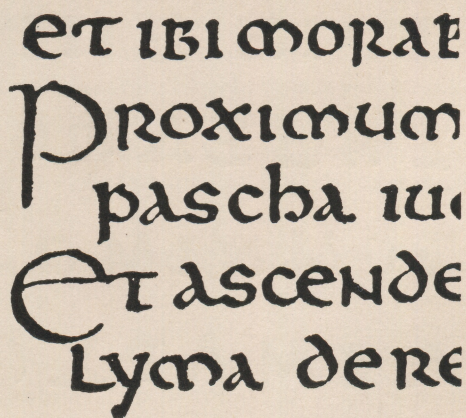 et ibi morab
Proximum
pascha iu
Et ascende
lyma de re